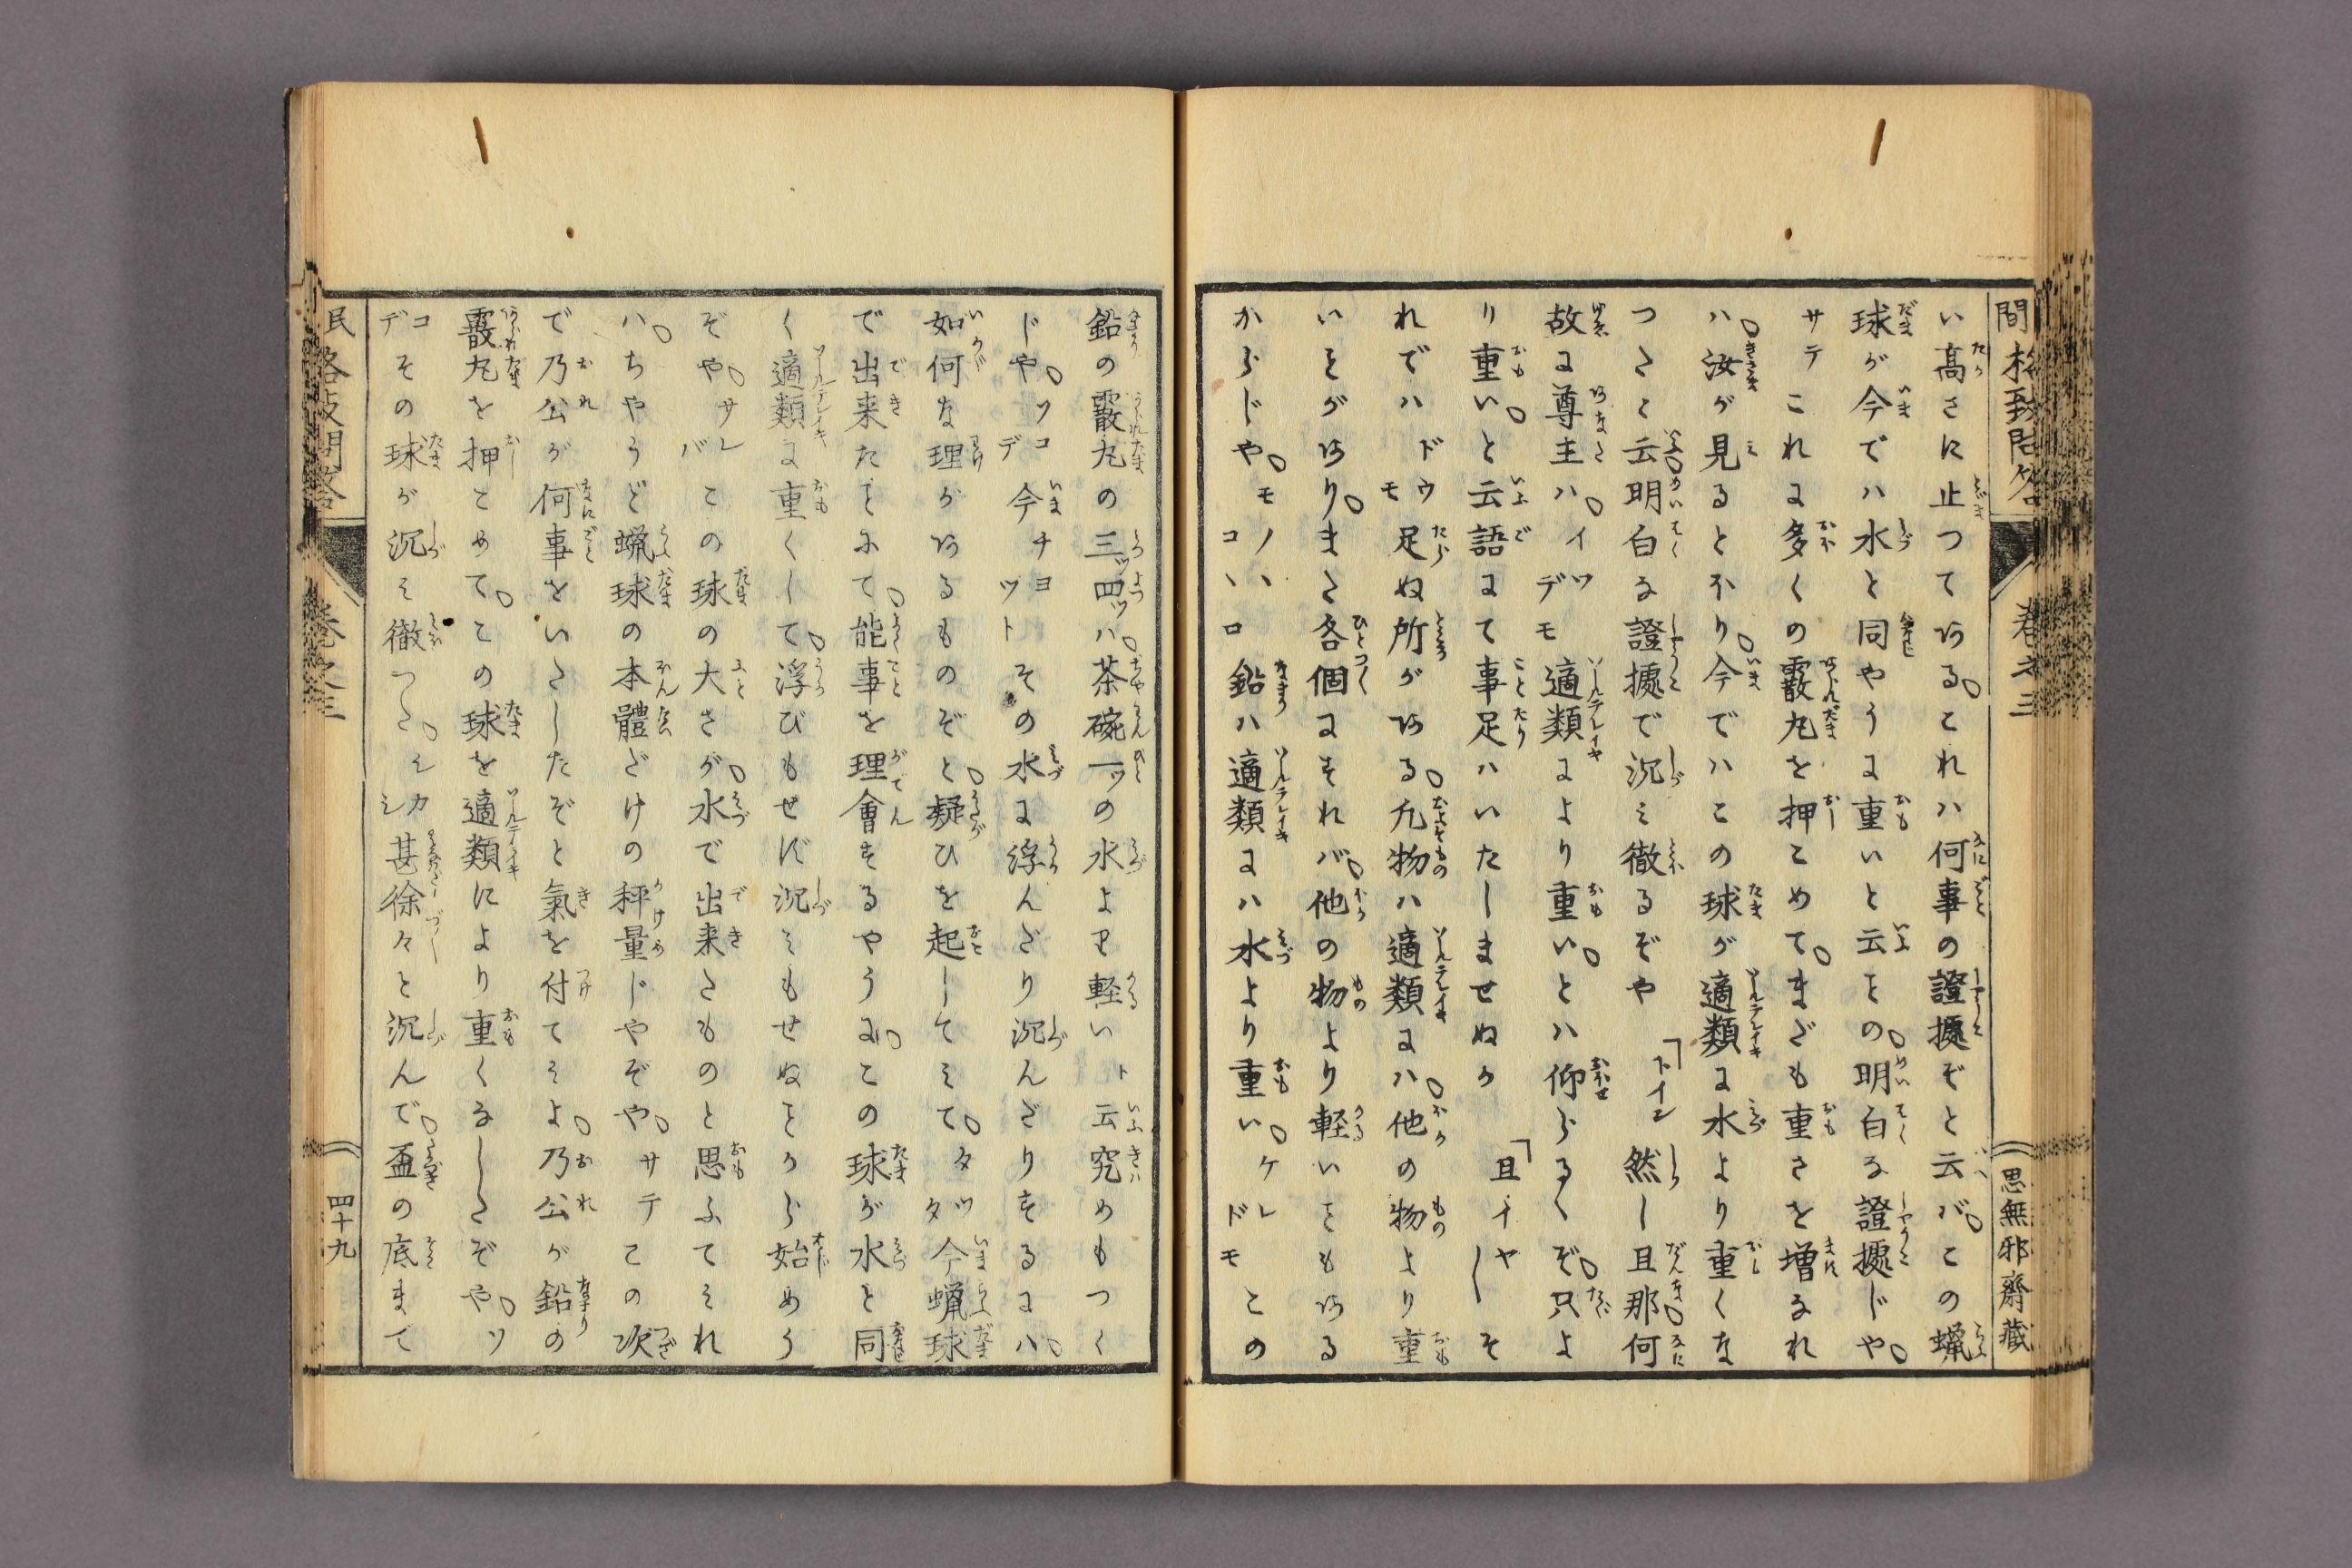 間格致問答 巻之三 思無邪齋藏
い高さに止つてある。これハ何事の證據ぞと云バ。この蝋
球が今でハ水と同やうに重いと云ことの。明白な證據じや。
サテこれに多くの霰丸を押こめて。ますます重さを増なれ
ハ。汝が見るとほり。今でハこの球が適類に水より重くな
つたと云。明白な證據で沉み徹るぞや「トイシ然し且那。何
故に尊主ハ。イツデモ適類により重い。とハ仰らるゝぞ。只よ
り重い。と云語にて事足ハいたしませぬか「且イヤーそ
れでハドウモ足ぬ所がある。凢物ハ適類にハ。他の物より重
いことがあり。また各個にすれバ。他の物より軽いこともある
からじや。モノハコヽロ鉛ハ適類にハ水より重い。ケレドモこの
鉛の霰丸の三ッ四ッハ。茶碗一ッの水よりも軽いト云究めもつく
じや。ソコデ今チヨツトその水に浮んだり沉んだりするにハ。
如何な理があるものぞと。疑ひを起してみて。タツタ今蝋球
で出来たことにて。能事を理會するやうに。この球が水と同
く適類に重くして。浮びもせず沉みもせぬことから始めう
ぞや。サレバこの球の大さが。水で出来たものと思ふてみれ
ハ。ちやうど蝋球の本體だけの秤量じやぞや。サテこの次
で乃公が何事をいたしたぞと氣を付てみよ。乃公が鉛の
霰丸を押こめて。この球を適類により重くなしたぞや。ソ
コデその球が沉み徹つた。シカシ甚徐々と沉んで。盃の底まて
民格致問答 巻之三 四十九